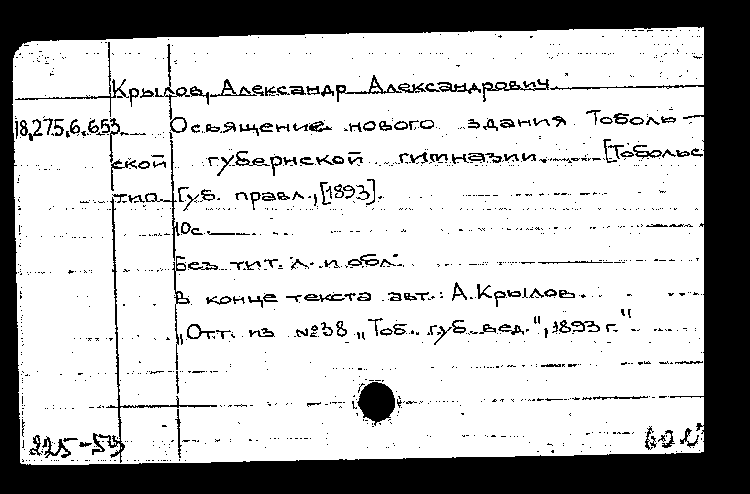 Крылов, Александр Александрович.
18.275.6.653 Освящение нового здания Тоболь-
ской губернской гимназии. [Тобольс
тип. Губ. правл., [1893].
10с.
Без тит. л. и обл.
В конце текста авт.: А.Крылов.
„Отт. из №38 „Тоб. губ. вед.", 1893 г."
225-53